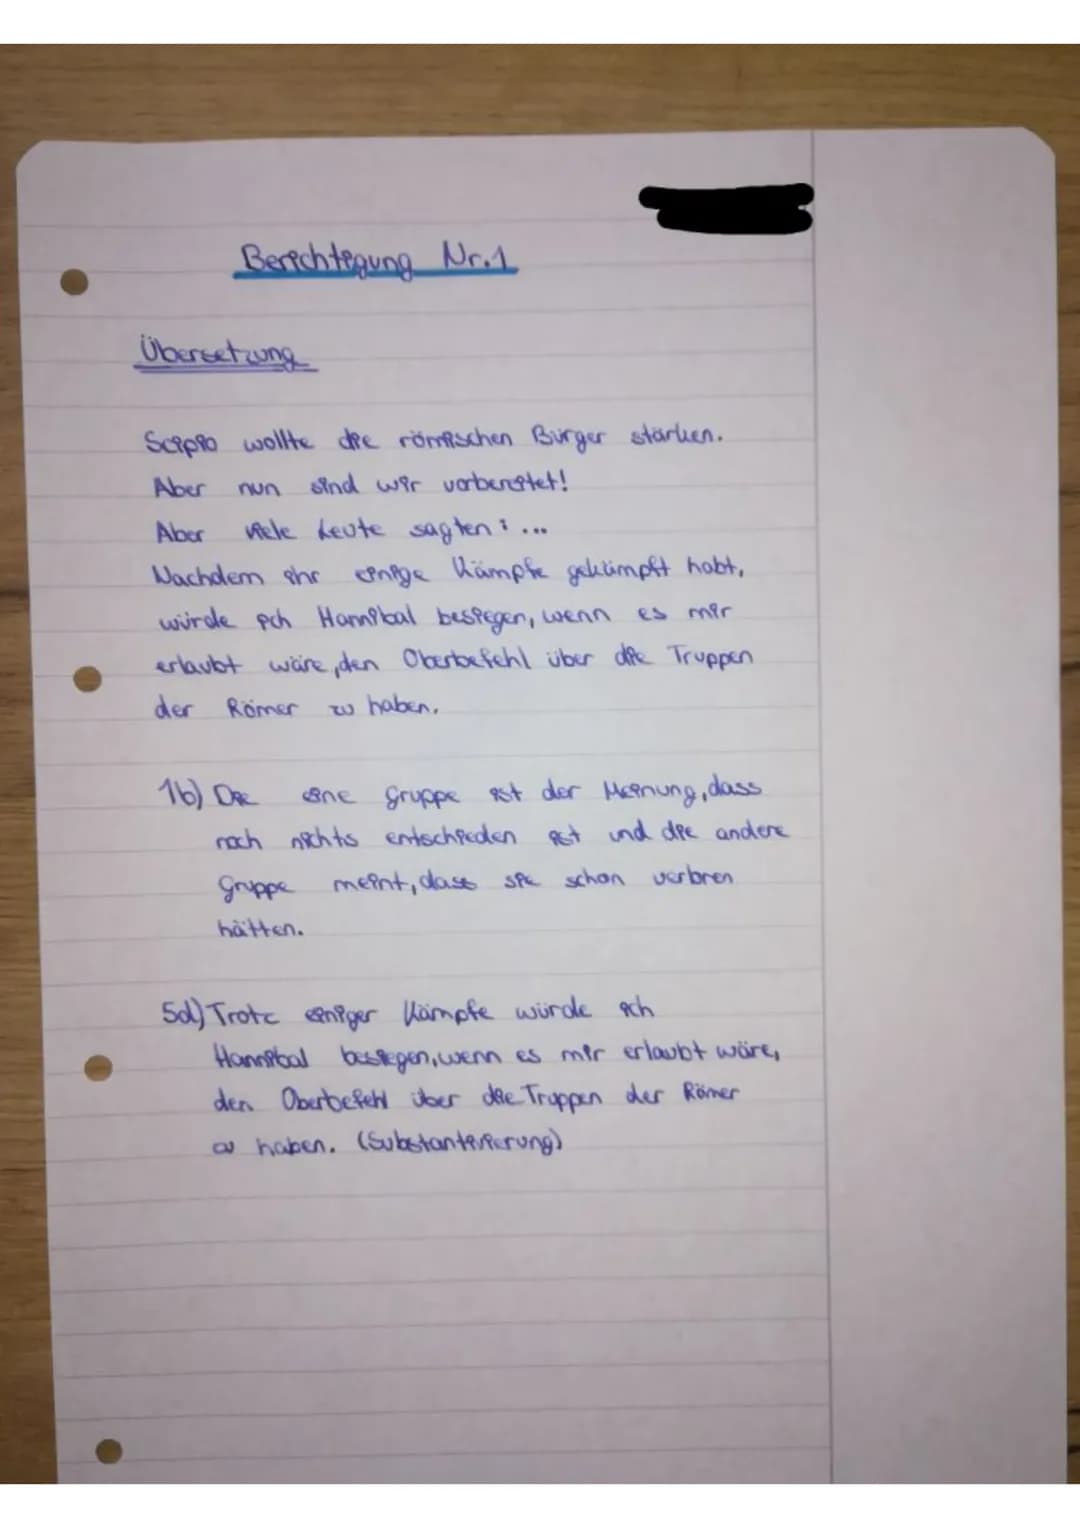 Berichtigung Nr.1
Übersetzung
Scipio wollte die römischen Bürger stärken.
Aber nun sind wir vorbereitet!
Aber viele Leute sagten: ...
Nachdem ihr einige Kämpfe gekämpft habt,
würde ich Hannibal besiegen, wenn es mir
erlaubt wäre, den Oberbefehl über die Truppen
der Römer zu haben.
1b) Die eine Gruppe ist der Meinung, dass
noch nichts entschieden ist und die andere
Gruppe meint, dass sie schon verloren
hätten.
5d) Trotz einiger Kämpfe würde ich
Hannibal besiegen, wenn es mir erlaubt wäre,
den Oberbefehl über die Truppen der Römer
zu haben. (Substantivierung)